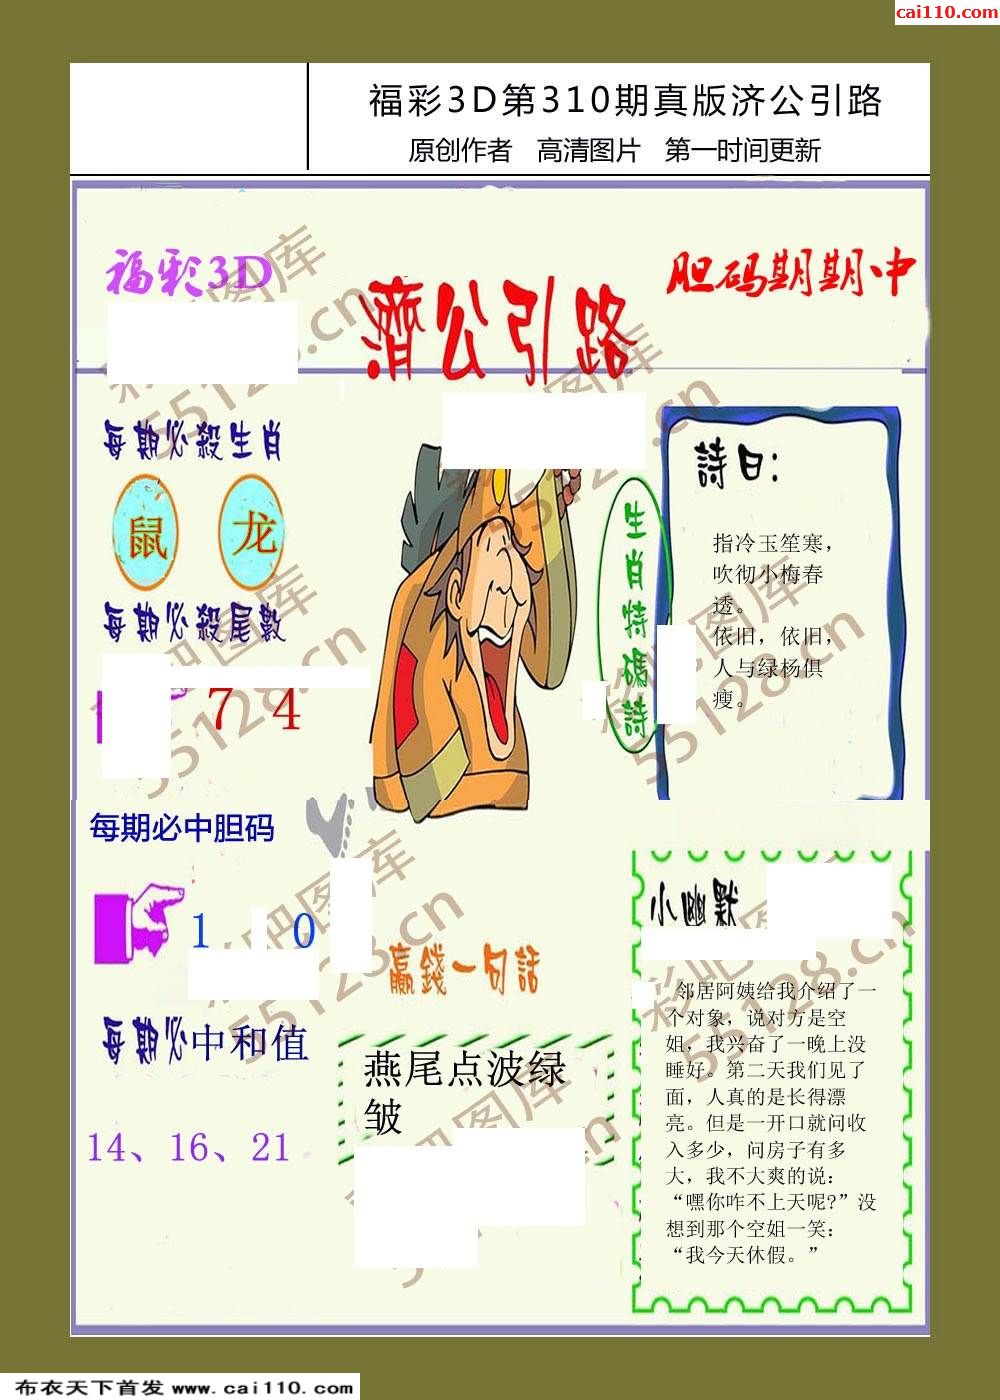 cai110.com
福彩3D第310期真版济公引路
原创作者 高清图片 第一时间更新
福彩3D
胆码期期中
濟公引路
每期必殺生肖
鼠 龙
每期必殺尾數
7 4
每期必中胆码
1 0
每期必中和值
14、16、21
生肖特碼詩
詩曰:
指冷玉笙寒，
吹彻小梅春
透。
依旧，依旧，
人与绿杨俱
瘦。
贏錢一句話
燕尾点波绿
皱
小幽默
邻居阿姨给我介绍了一
个对象，说对方是空
姐，我兴奋了一晚上没
睡好。第二天我们见了
面，人真的是长得漂
亮。但是一开口就问收
入多少，问房子有多
大，我不大爽的说：
“嘿你咋不上天呢?”没
想到那个空姐一笑：
“我今天休假。”
彩吧图库
55128.cn
布衣天下首发 www.cai110.com